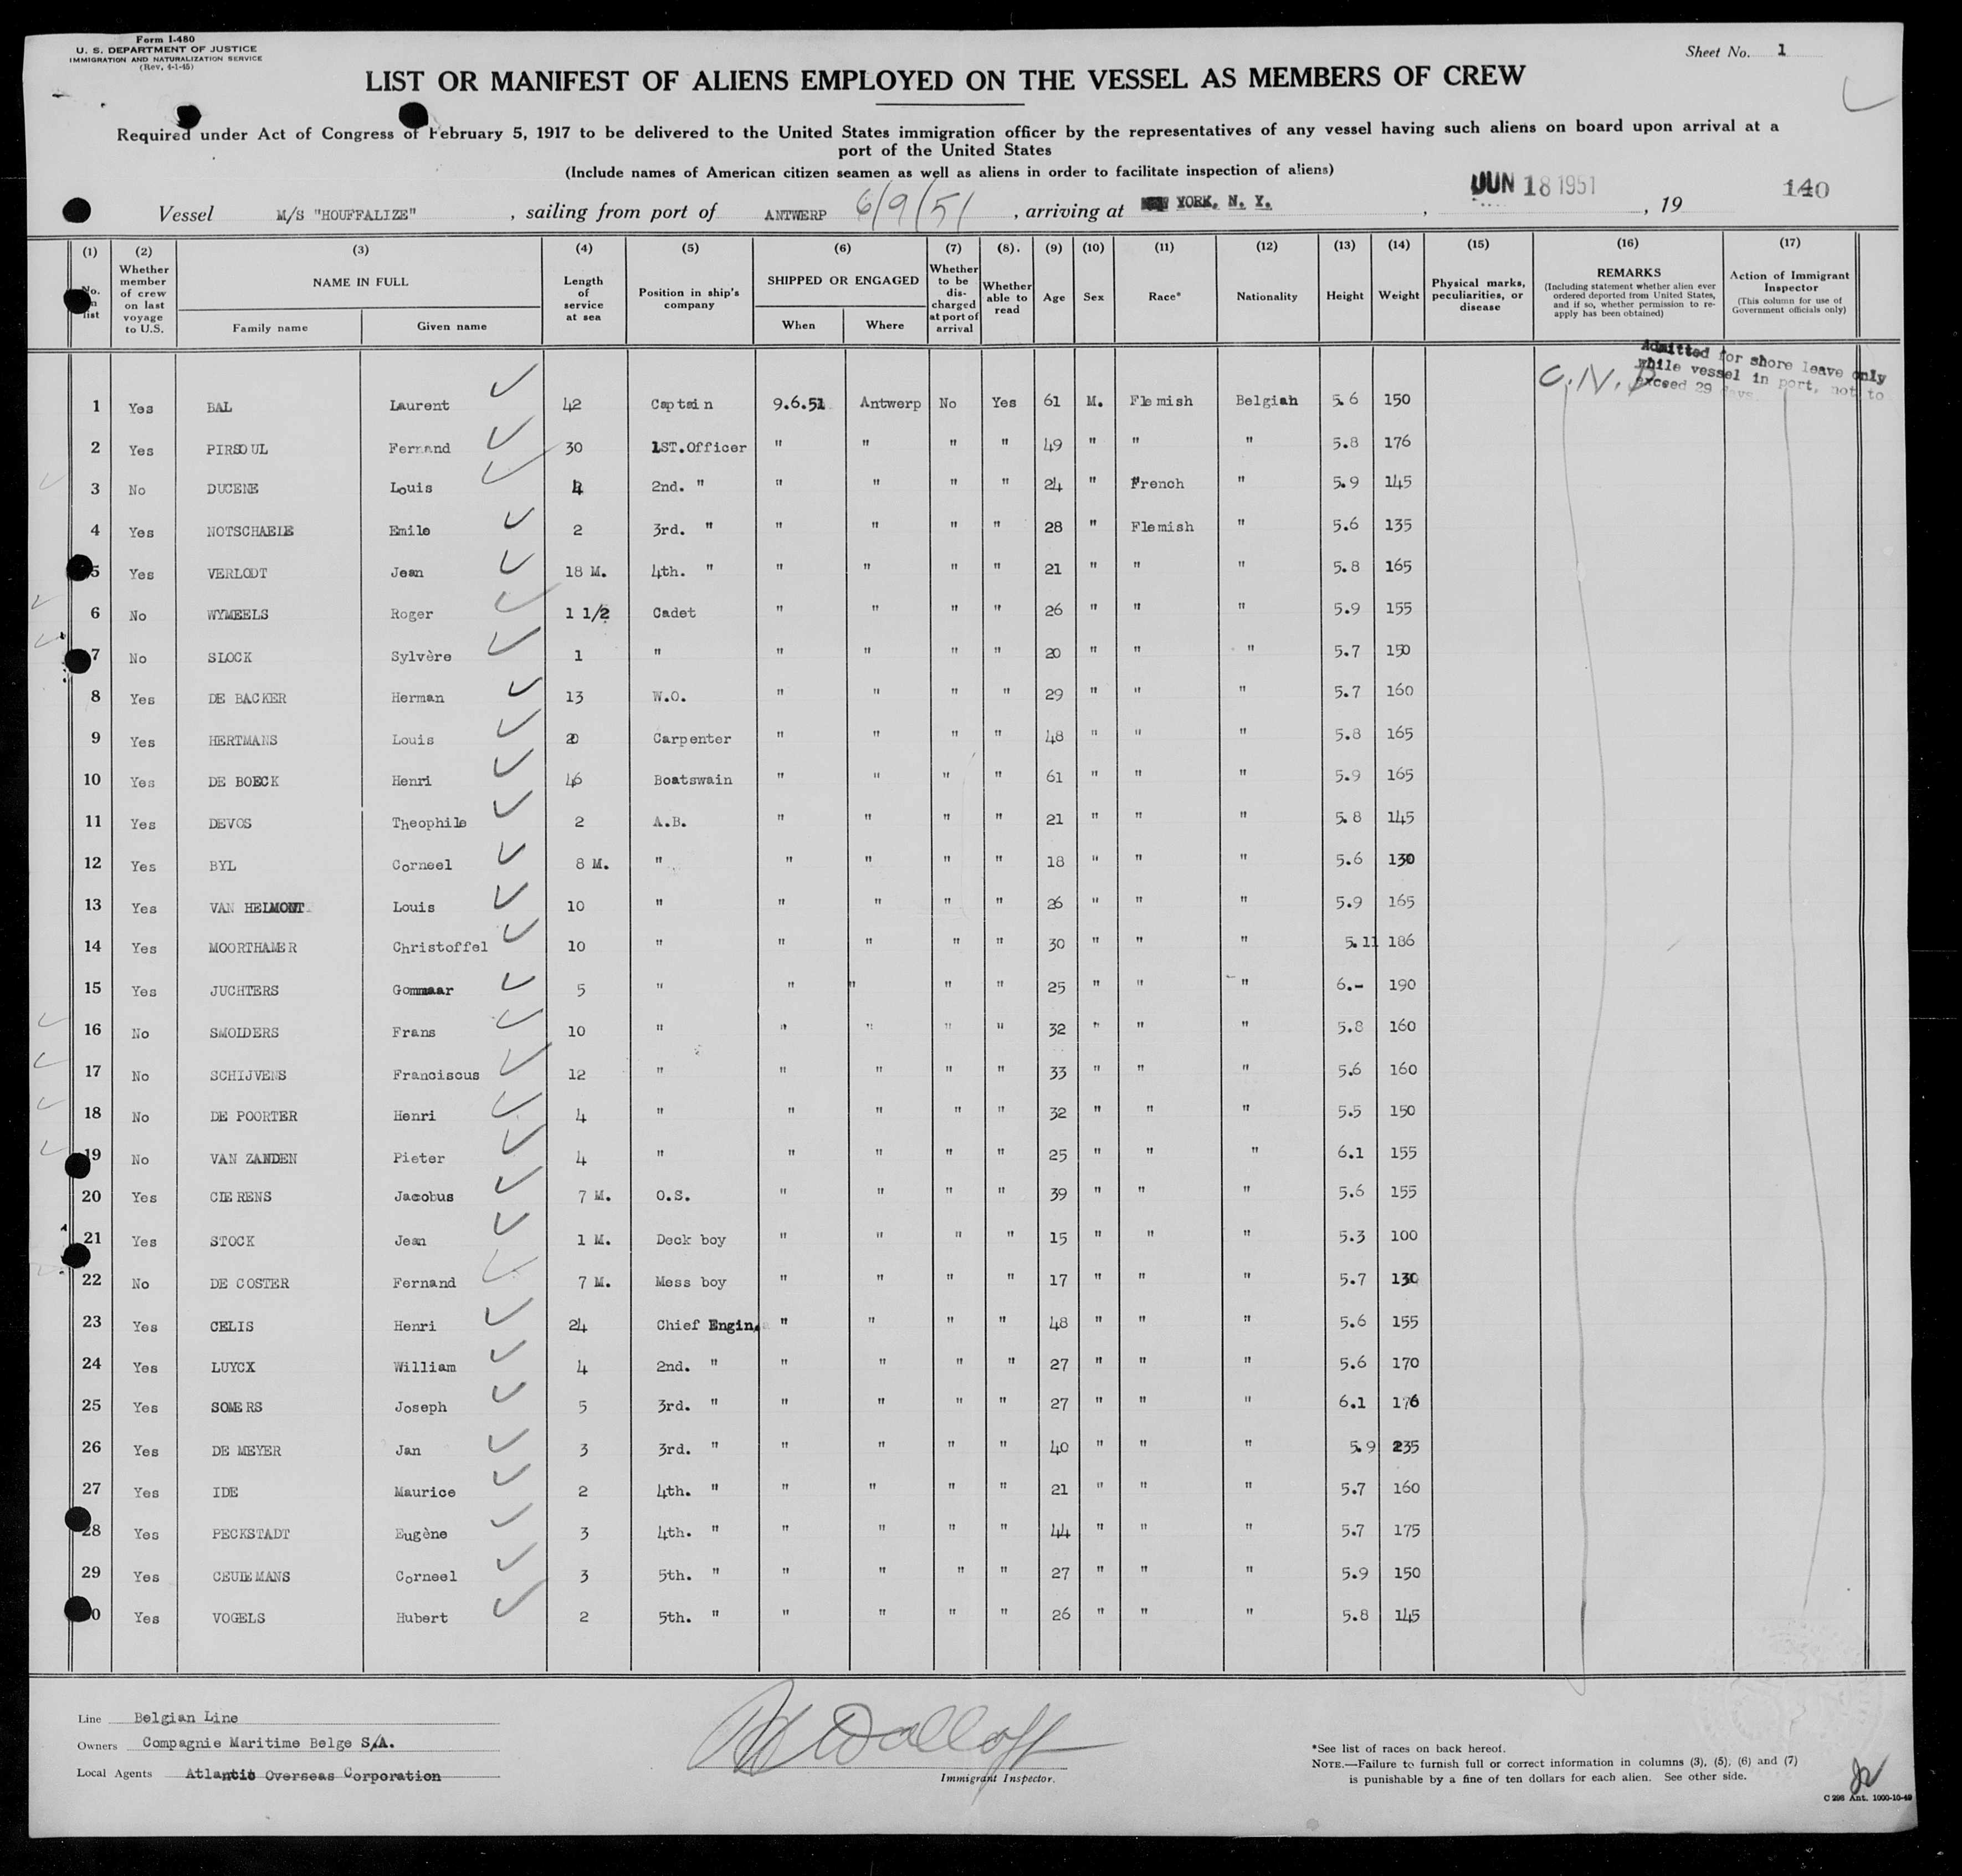 Form I-480
U. S. DEPARTMENT OF JUSTICE
IMMIGRATION AND NATURALIZATION SERVICE
(Rev. 4-1-45)
Sheet No. 1
LIST OR MANIFEST OF ALIENS EMPLOYED ON THE VESSEL AS MEMBERS OF CREW
Required under Act of Congress of February 5, 1917 to be delivered to the United States immigration officer by the representatives of any vessel having such aliens on board upon arrival at a
port of the United States
(Include names of American citizen seamen as well as aliens in order to facilitate inspection of aliens)
JUN 18 1951
140
Vessel M/S "HOUFFALIZE" , sailing from port of ANTWERP 6/9/51 , arriving at NEW YORK, N. Y. , , 19
(1) (2) (3) (4) (5) (6) (7) (8). (9) (10) (11) (12) (13) (14) (15) (16) (17)
No. on list
Whether member of crew on last voyage to U.S.
NAME IN FULL
Family name
Given name
Length of service at sea
Position in ship's company
SHIPPED OR ENGAGED
When
Where
Whether to be discharged at port of arrival
Whether able to read
Age
Sex
Race*
Nationality
Height
Weight
Physical marks, peculiarities, or disease
REMARKS
(Including statement whether alien ever ordered deported from United States, and if so, whether permission to re-apply has been obtained)
Action of Immigrant Inspector
(This column for use of Government officials only)
C.N.P
Admitted for shore leave only
while vessel in port, not to
exceed 29 days
1 Yes BAL Laurent 42 Captain 9.6.51 Antwerp No Yes 61 M. Flemish Belgian 5.6 150
2 Yes PIRSOUL Fernand 30 1ST.Officer " " " " 49 " " " 5.8 176
3 No DUCENE Louis 4 2nd. " " " " " 24 " French " 5.9 145
4 Yes NOTSCHAELE Emile 2 3rd. " " " " " 28 " Flemish " 5.6 135
5 Yes VERLODT Jean 18 M. 4th. " " " " " 21 " " " 5.8 165
6 No WYMEELS Roger 1 1/2 Cadet " " " " 26 " " " 5.9 155
7 No SLOCK Sylvère 1 " " " " " 20 " " " 5.7 150
8 Yes DE BACKER Herman 13 W.O. " " " " 29 " " " 5.7 160
9 Yes HERTMANS Louis 20 Carpenter " " " " 48 " " " 5.8 165
10 Yes DE BOECK Henri 46 Boatswain " " " " 61 " " " 5.9 165
11 Yes DEVOS Theophile 2 A.B. " " " " 21 " " " 5.8 145
12 Yes BYL Corneel 8 M. " " " " " 18 " " " 5.6 130
13 Yes VAN HELMONT Louis 10 " " " " " 26 " " " 5.9 165
14 Yes MOORTHAMER Christoffel 10 " " " " " 30 " " " 5.11 186
15 Yes JUCHTERS Gommaar 5 " " " " " 25 " " " 6.- 190
16 No SMOLDERS Frans 10 " " " " " 32 " " " 5.8 160
17 No SCHIJVENS Franciscus 12 " " " " " 33 " " " 5.6 160
18 No DE POORTER Henri 4 " " " " " 32 " " " 5.5 150
19 No VAN ZANDEN Pieter 4 " " " " " 25 " " " 6.1 155
20 Yes CIERENS Jacobus 7 M. O.S. " " " " 39 " " " 5.6 155
21 Yes STOCK Jean 1 M. Deck boy " " " " 15 " " " 5.3 100
22 No DE COSTER Fernand 7 M. Mess boy " " " " 17 " " " 5.7 130
23 Yes CELIS Henri 24 Chief Engin. " " " " 48 " " " 5.6 155
24 Yes LUYCX William 4 2nd. " " " " " 27 " " " 5.6 170
25 Yes SOMERS Joseph 5 3rd. " " " " " 27 " " " 6.1 176
26 Yes DE MEYER Jan 3 3rd. " " " " " 40 " " " 5.9 235
27 Yes IDE Maurice 2 4th. " " " " " 21 " " " 5.7 160
28 Yes PECKSTADT Eugène 3 4th. " " " " " 44 " " " 5.7 175
29 Yes CEULEMANS Corneel 3 5th. " " " " " 27 " " " 5.9 150
30 Yes VOGELS Hubert 2 5th. " " " " " 26 " " " 5.8 145
Line Belgian Line
Owners Compagnie Maritime Belge S/A.
Local Agents Atlantic Overseas Corporation
Immigrant Inspector.
*See list of races on back hereof.
NOTE.—Failure to furnish full or correct information in columns (3), (5), (6) and (7)
is punishable by a fine of ten dollars for each alien. See other side.
C 298 Ant. 1000-10-49